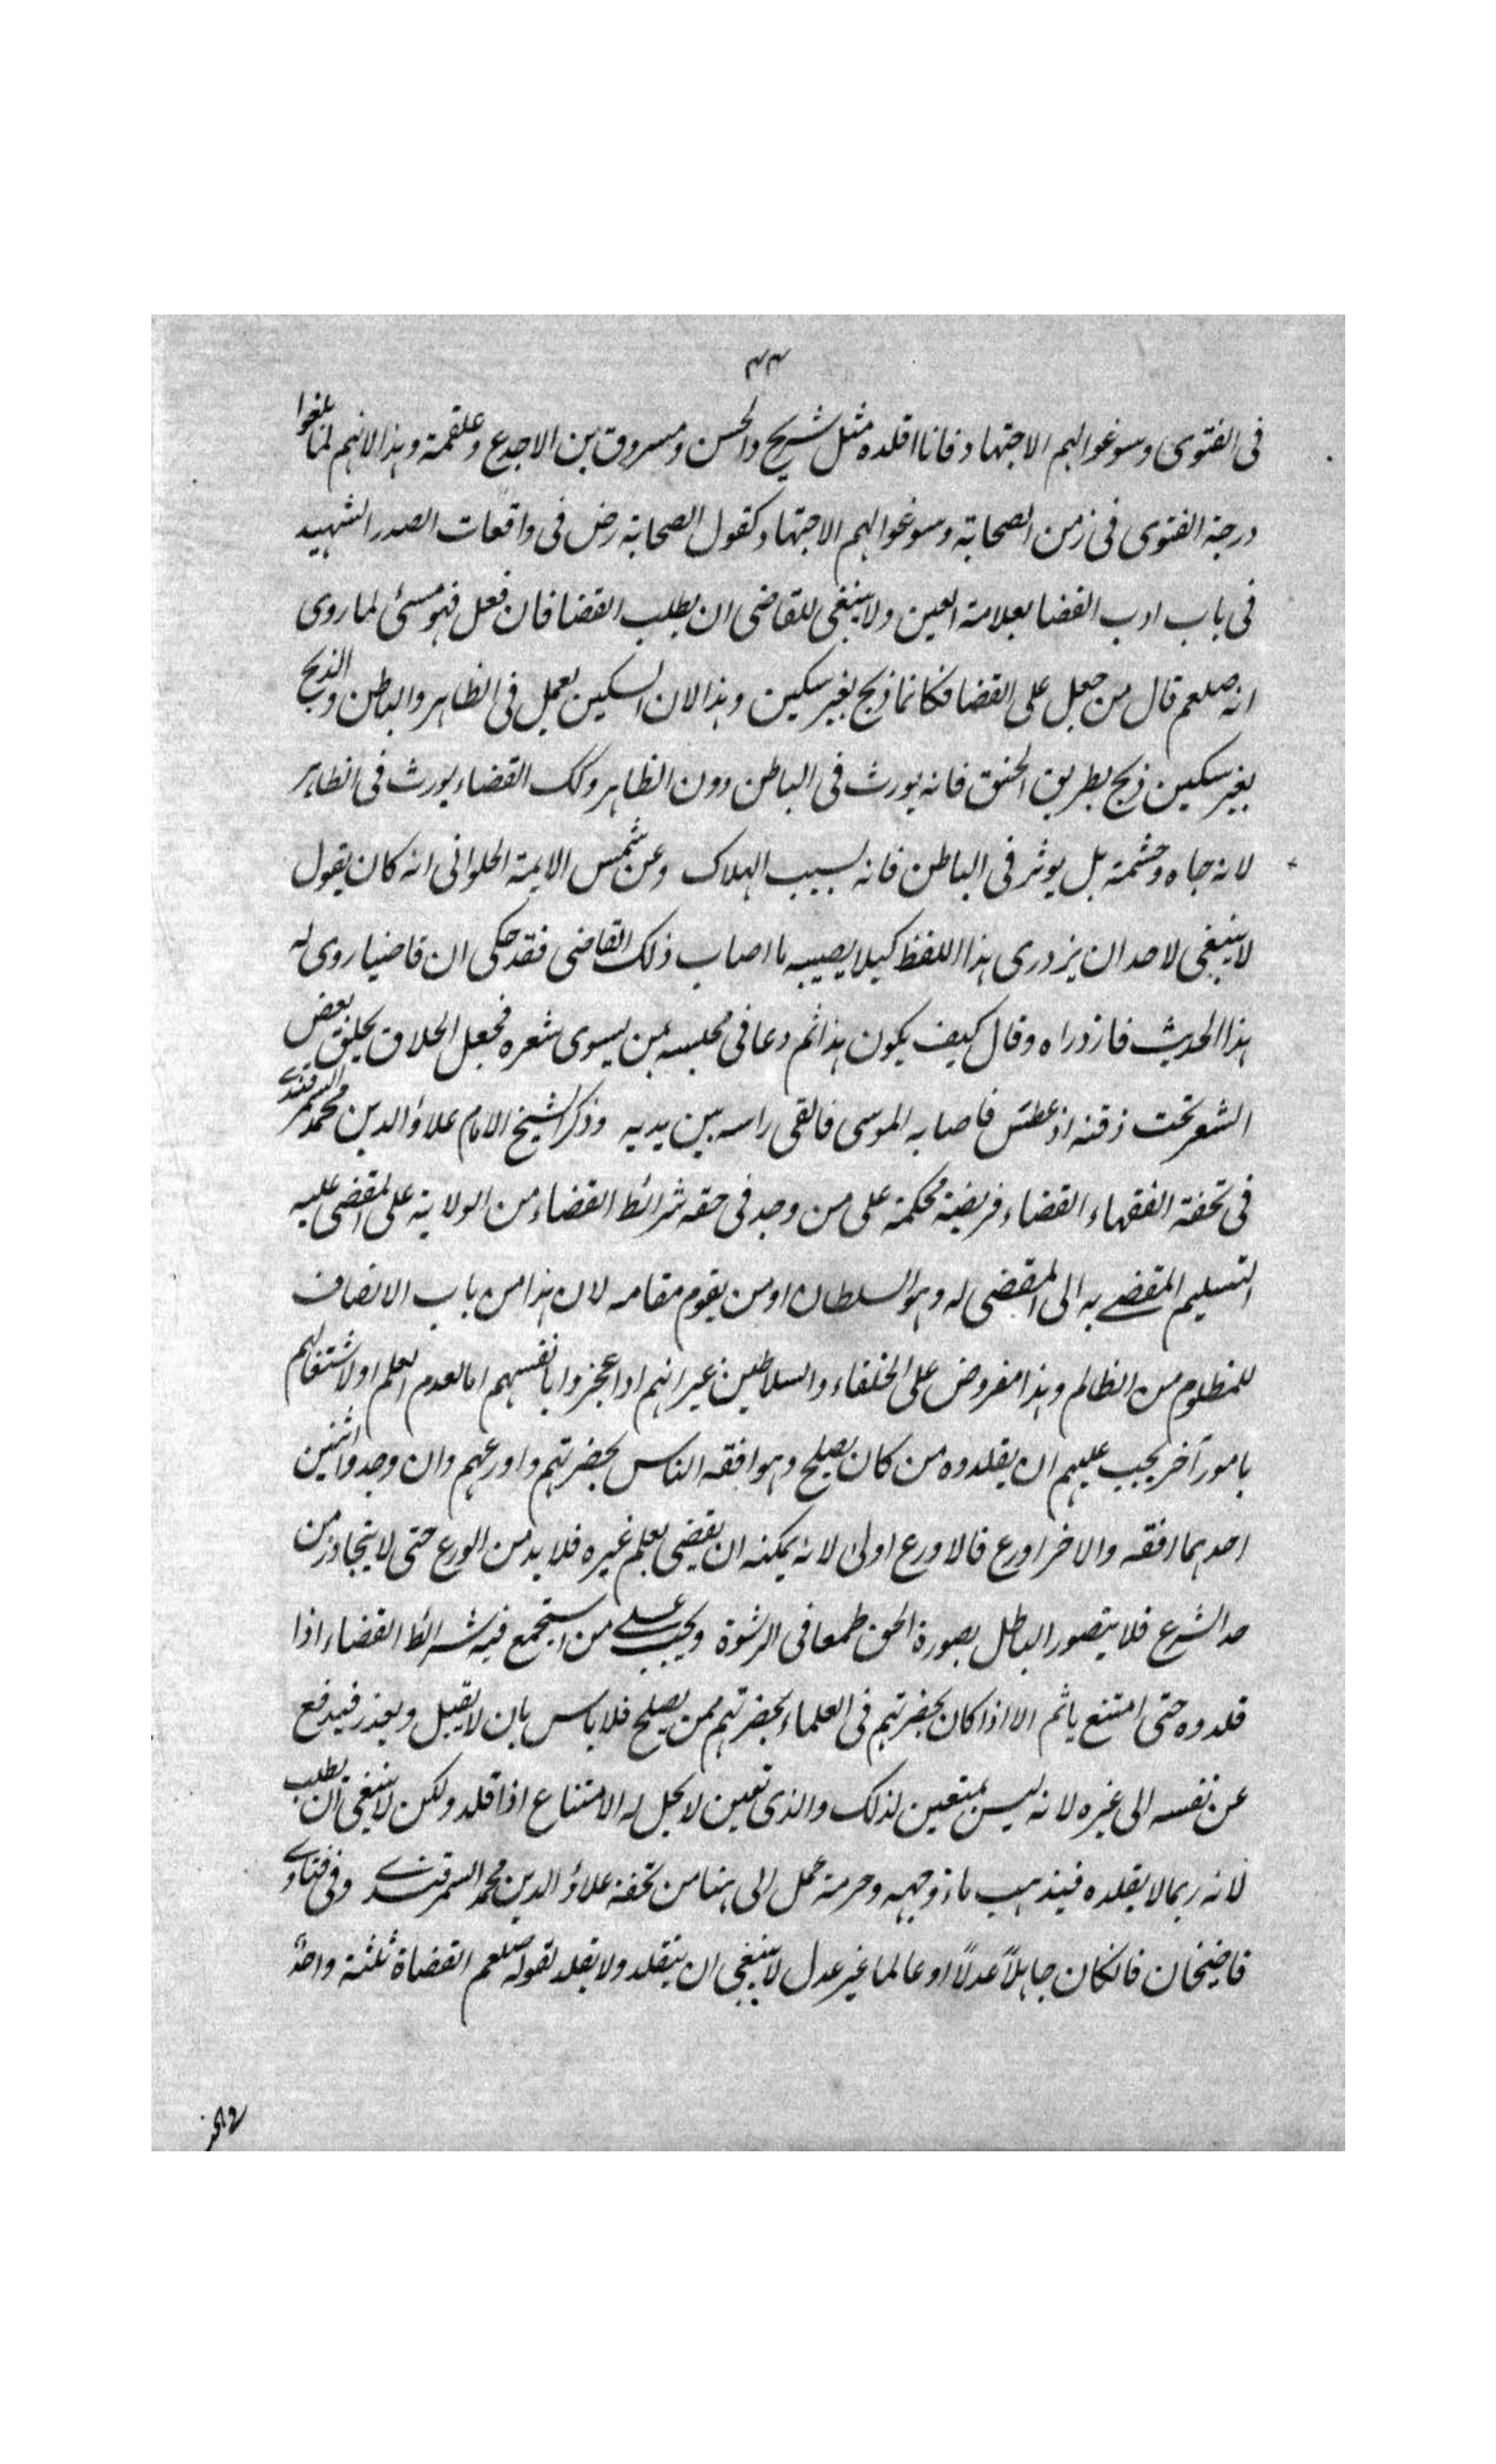 ٣٣
فى الفتوى وسوغوا لهم الاجتهاد فانا اقلده مثل شريح والحسن ومسروق بن الاجدع وعلقمة وهذا لانهم لما بلغوا
درجة الفتوى فى زمن الصحابة وسوغوا لهم الاجتهاد كقول الصحابة رض فى واقعات الصدر الشهيد
فى باب ادب القضا بعلامة العين ولا ينبغى للقاضى ان يطلب القضا فان فعل فهو مسئ لما روى
انه صلعم قال من جعل على القضا فكانما ذبح بغير سكين وهذا لان السكين يعمل فى الظاهر والباطن والذبح
بغير سكين ذبح بطريق الخنق فانه يورث فى الباطن دون الظاهر وكك القضاء يورث فى الظاهر
لانه جاه وحشمة بل يوثر فى الباطن فانه لسبب الهلاك وعن شمس الايمة الحلوانى انه كان يقول
لا ينبغى لاحد ان يزدرى هذا اللفظ كيلا يصيبه ما اصاب ذلك القاضى فقد حكى ان قاضيا روى له
هذا الحديث فازدراه وقال كيف يكون هذا ثم دعا فى مجلسه بمن يسوى شعره فجعل الحلاق يحلق بعض
الشعر تحت ذقنه اذ عطس فاصابه الموسى فالقى راسه بين يديه وذكر الشيخ الامام علاؤ الدين محمد السمرقندى
فى تحفة الفقهاء القضاء فريضة محكمة على من وجد فى حقه شرائط القضاء من الولاية على المقضى عليه
التسليم المقضے به الى المقضى له وهو السلطان او من يقوم مقامه لان هذا من باب الانصاف
للمظلوم من الظالم وهذا مفروض على الخلفاء والسلاطين غير انهم اذا عجزوا بانفسهم اما لعدم العلم او لاشتغالهم
بامور آخر يجب عليهم ان يقلدوه من كان يصلح وهو افقه الناس بحضرتهم واورعهم وان وجد واثنين
احدهما افقه والاخر اورع فالاورع اولى لانه يمكنه ان يقضى بعلم غيره فلا بد من الورع حتى لا يتجاوز من
حد الشرع فلا يتصور الباطل بصورة الحق طمعا فى الرشوة ويجب علے من استجمع فيه شرائط القضاء اذا
قلدوه حتى امتنع ياثم الا اذا كان بحضرتهم فى العلماء بحضرتهم ممن يصلح فلا باس بان لا يقبل ويعذر فيدفع
عن نفسه الى غيره لانه ليس بمتعين لذلك والذى تعين لا يحل له الامتناع اذا قلد ولكن لا ينبغى ان يطلب
لانه ربما لا يقلده فيذهب ماء وجهه وحرمة عمل الى هنا من تحفة علاؤ الدين محمد السمرقندے وفى فتاوے
قاضيخان فانكان جاهلاً عدلاً او عالما غير عدل لا ينبغى ان يتقلد ولا يقلد لقوله صلعم القضاة ثلثة واحدٌ